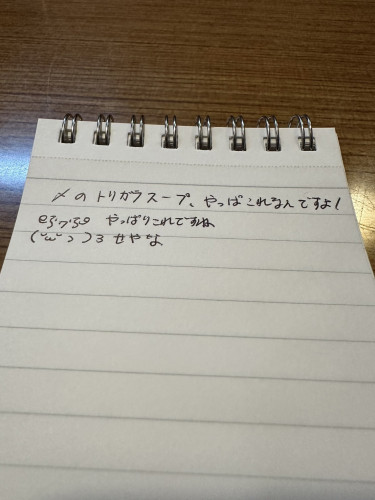 〆のトリガラスープ、やっぱこれなんですよ!
やっぱりこれですね
(˘ω˘ っ )3 せやな